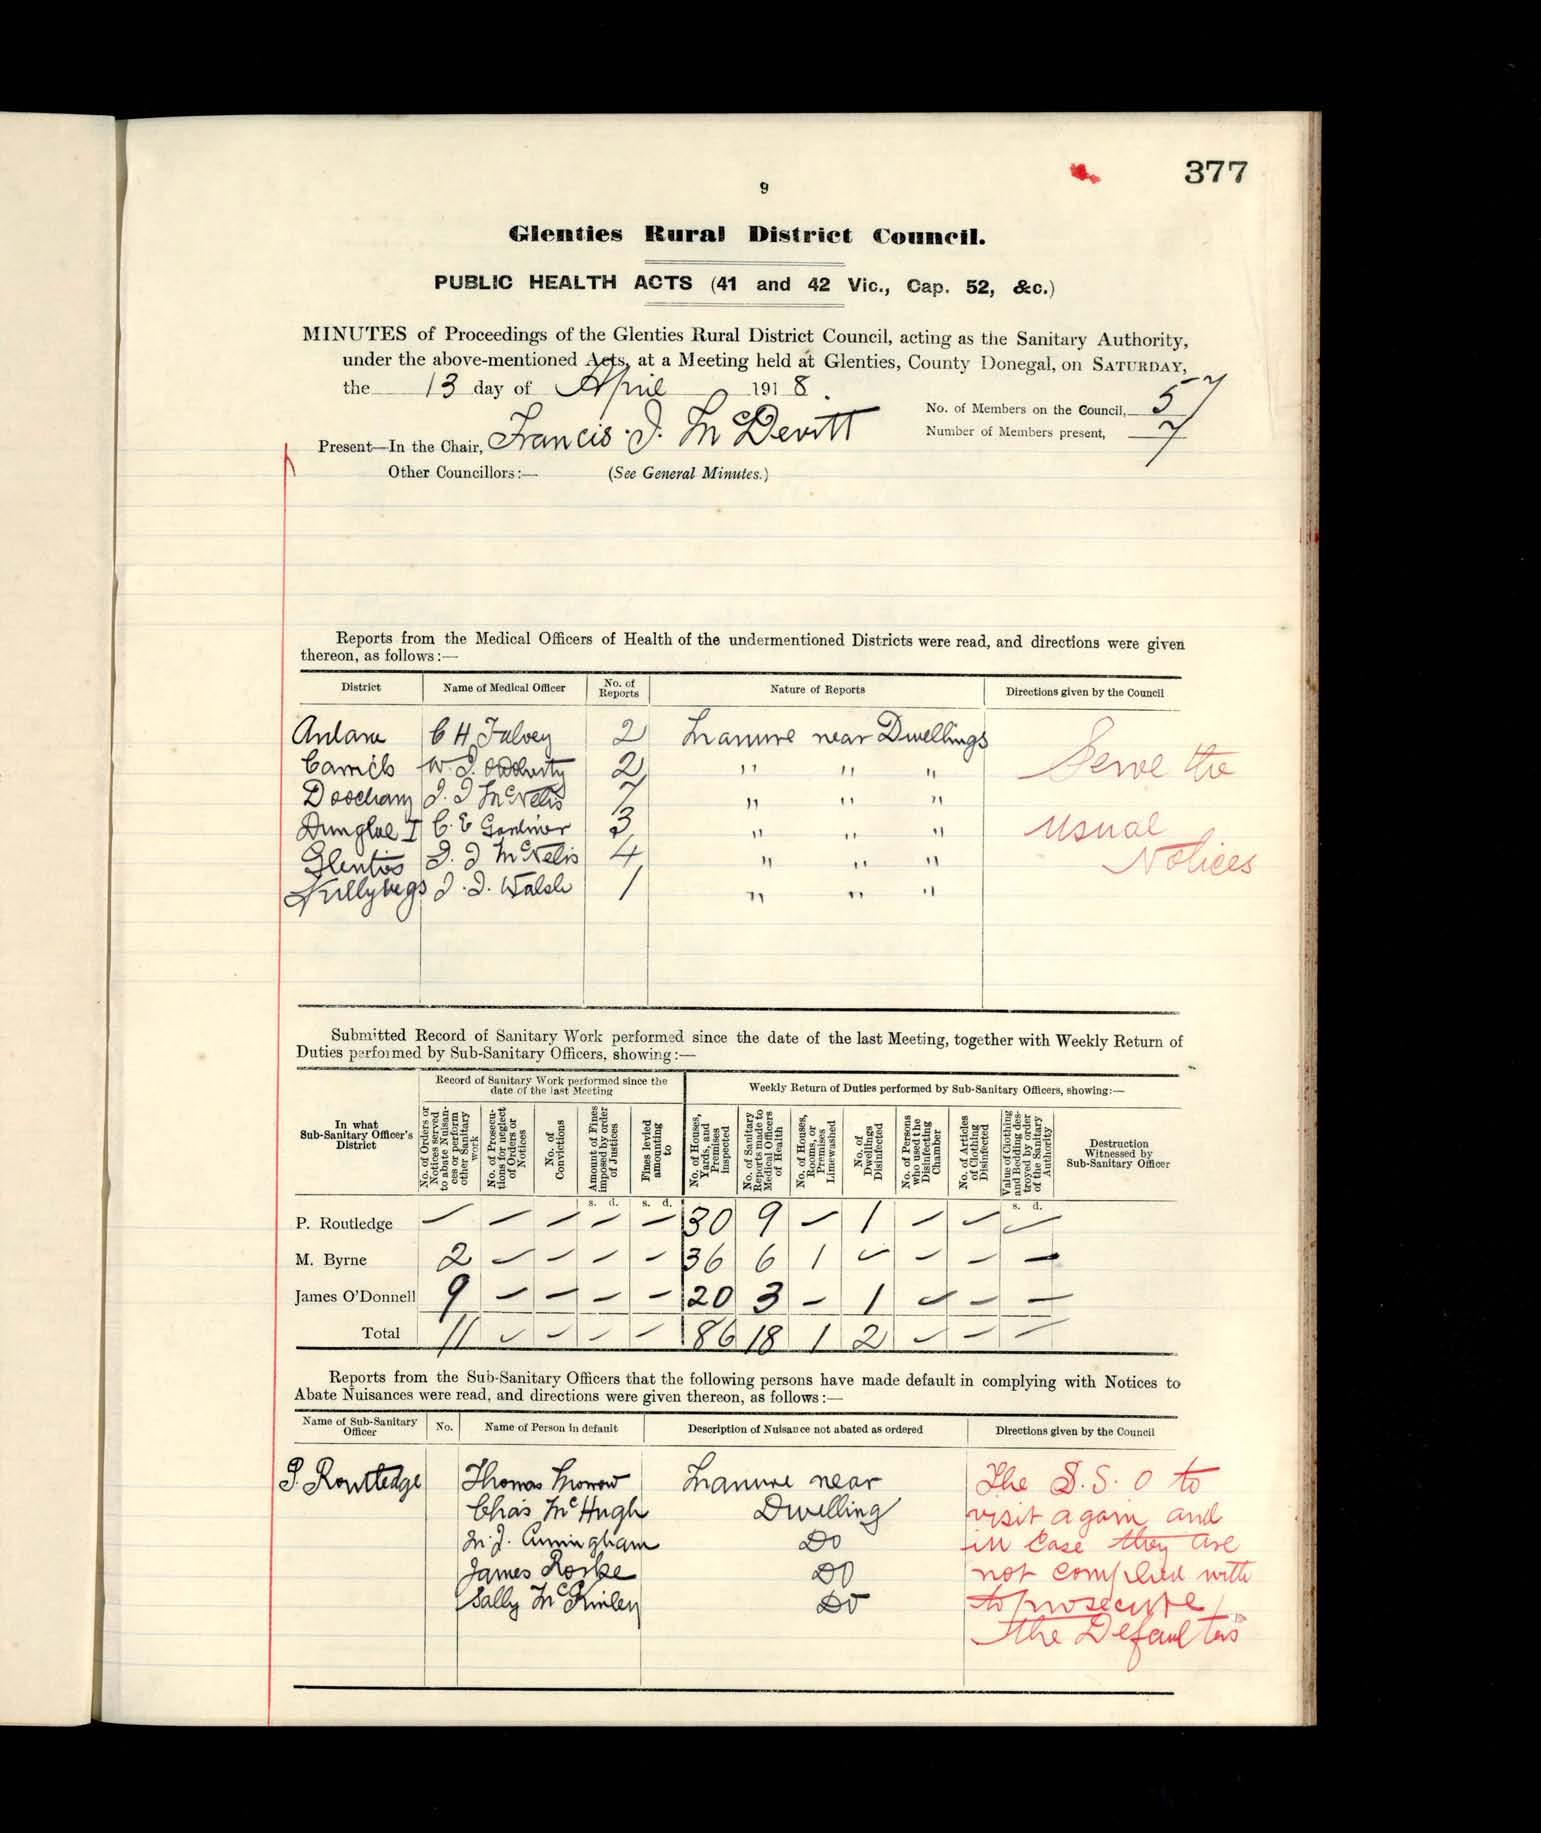 377
9
Glenties Rural District Council.
PUBLIC HEALTH ACTS (41 and 42 Vic., Cap. 52, &c.)
MINUTES of Proceedings of the Glenties Rural District Council, acting as the Sanitary Authority,
under the above-mentioned Acts, at a Meeting held at Glenties, County Donegal, on SATURDAY,
the 13 day of April 1918.
No. of Members on the Council, 57
Number of Members present, 7
Present—In the Chair, Francis J. McDevitt
Other Councillors:— (See General Minutes.)
Reports from the Medical Officers of Health of the undermentioned Districts were read, and directions were given
thereon, as follows:—
District Name of Medical Officer No. of Reports Nature of Reports Directions given by the Council
Ardara C H Falvey 2 Manure near Dwellings
Carrick W. J. O'Doherty 2 " " " Serve the
Doochary J. J McNelis 7 " " "
Dungloe I C. E Gardiner 3 " " " usual
Glenties J. J McNelis 4 " " " Notices
Killybegs J. J. Walsh 1 " " "
Submitted Record of Sanitary Work performed since the date of the last Meeting, together with Weekly Return of
Duties performed by Sub-Sanitary Officers, showing:—
Record of Sanitary Work performed since the date of the last Meeting
Weekly Return of Duties performed by Sub-Sanitary Officers, showing:—
In what Sub-Sanitary Officer's District
No. of Orders or Notices served to abate Nuisances or perform other Sanitary work
No. of Prosecutions for neglect of Orders or Notices
No. of Convictions
Amount of Fines imposed by order of Justices
Fines levied amounting to
No. of Houses, Yards, and Premises Inspected
No. of Sanitary Reports made to Medical Officers of Health
No. of Houses, Rooms, or Premises Limewashed
No. of Dwellings Disinfected
No. of Persons who used the Disinfecting Chamber
No. of Articles of Clothing Disinfected
Value of Clothing and Bedding destroyed by order of the Sanitary Authority
Destruction Witnessed by Sub-Sanitary Officer
s. d. s. d. s. d.
P. Routledge — — — — — 30 9 — 1 — — —
M. Byrne 2 — — — — 36 6 1 — — — —
James O'Donnell 9 — — — — 20 3 — 1 — — —
Total 11 — — — — 86 18 1 2 — — —
Reports from the Sub-Sanitary Officers that the following persons have made default in complying with Notices to
Abate Nuisances were read, and directions were given thereon, as follows:—
Name of Sub-Sanitary Officer No. Name of Person in default Description of Nuisance not abated as ordered Directions given by the Council
P. Routledge Thomas Morrow Manure near The S. S. O to
Chas McHugh Dwelling visit again and
M. J. Cunningham Do in case they are
James Rorke Do not complied with
Sally McGinley Do to prosecute
the Defaulters